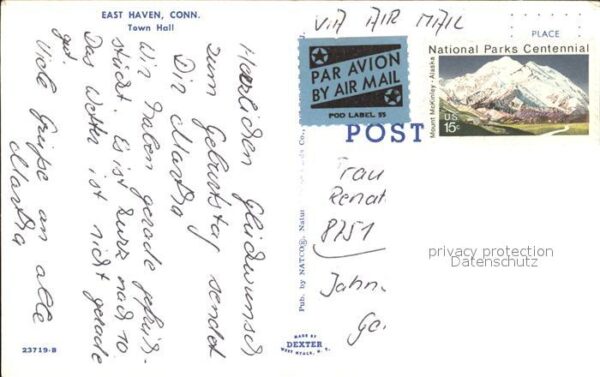 EAST HAVEN, CONN.
Town Hall
Herzlichen Glückwunsch
zum Geburtstag sendet
Dir Martha
Wir haben gerade gefrüh-
stückt. Es ist kurz nach 10.
Das Wetter ist nicht gerade
gut.
Viele Grüße an alle
Martha
23719-B
Pub. by NATCO®, Natur
MADE BY
DEXTER
WEST NYACK, N. Y.
VIA AIR MAIL
PAR AVION
BY AIR MAIL
POD LABEL 55
PLACE
National Parks Centennial
Mount McKinley - Alaska
U.S.
15c
POST
Frau
Renat
8751
Jahn.
Ge.
privacy protection
Datenschutz